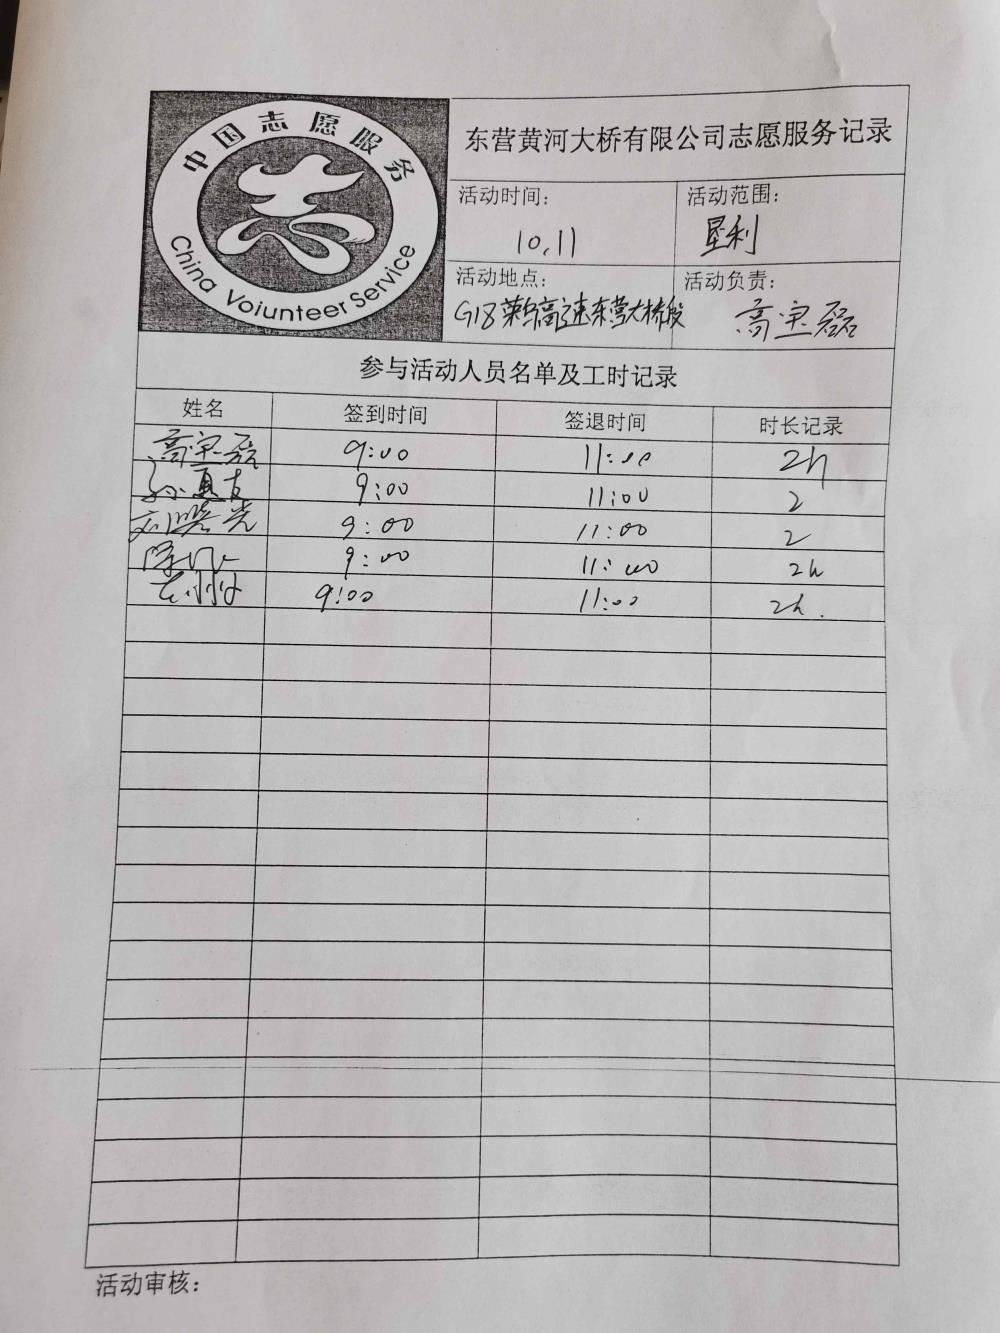 中国志愿服务
China Voiunteer Service
东营黄河大桥有限公司志愿服务记录
活动时间:
10.11
活动范围:
垦利
活动地点:
G18荣乌高速东营大桥段
活动负责:
高宝磊
参与活动人员名单及工时记录
姓名 签到时间 签退时间 时长记录
高宝磊 9:00 11:00 2h
9:00 11:00 2
9:00 11:00 2
9:00 11:00 2h
9:00 11:00 2h.
活动审核: